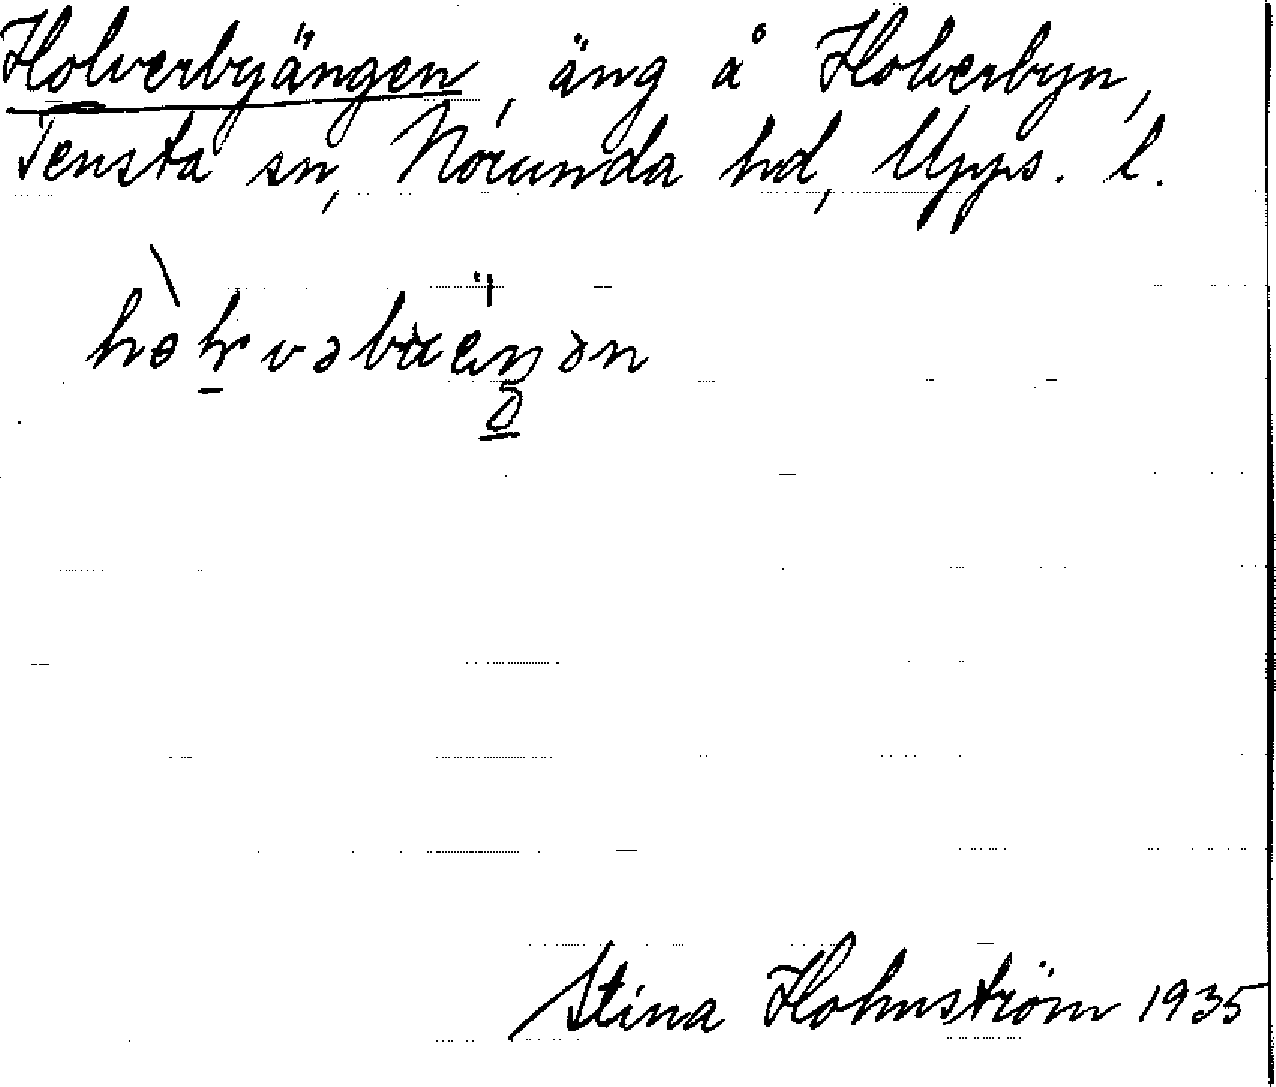 Holverbyängen, äng å Holverbyn,
Tensta sn, Norunda hd, Upps. l.
Stina Holmström 1935